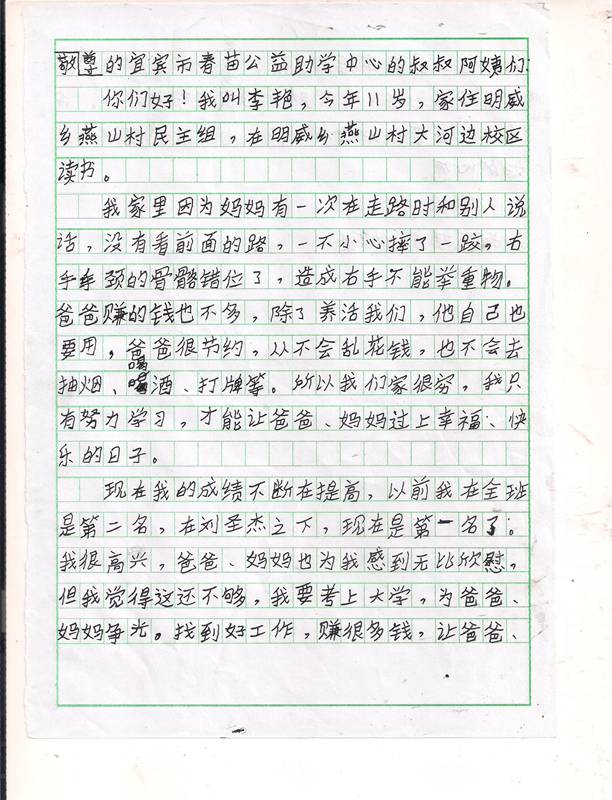 敬尊的宜宾市春苗公益助学中心的叔叔阿姨们:
你们好!我叫李艳,今年11岁,家住明威
乡燕山村民主组,在明威乡燕山村大河边校区
读书。
我家里因为妈妈有一次在走路时和别人说
话,没有看前面的路,一不小心摔了一跤。右
手颈的骨骼错位了,造成右手不能举重物。
爸爸赚的钱也不多,除了养活我们,他自己也
要用,爸爸很节约,从不会乱花钱,也不会去
抽烟、喝酒、打牌等。所以我们家很穷,我只
有努力学习,才能让爸爸、妈妈过上幸福、快
乐的日子。
现在我的成绩不断在提高,以前我在全班
是第二名,在刘圣杰之下,现在是第一名了。
我很高兴,爸爸、妈妈也为我感到无比欣慰。
但我觉得这还不够,我要考上大学,为爸爸、
妈妈争光。找到好工作,赚很多钱,让爸爸、